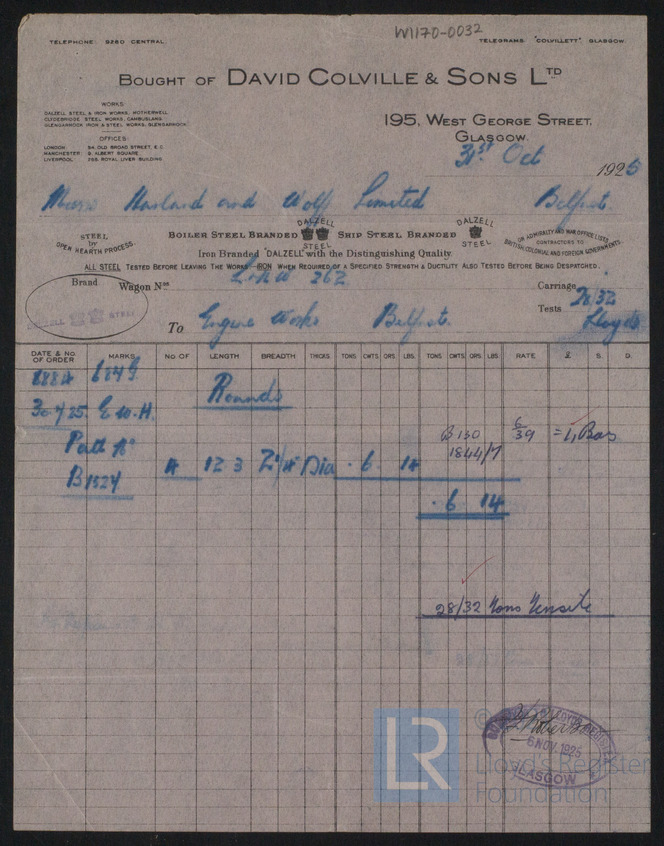 W1170-0032
TELEPHONE: 5260 CENTRAL. TELEGRAMS: "COLVILLETT" GLASGOW.
BOUGHT OF DAVID COLVILLE & SONS LTD
WORKS:
DALZELL STEEL & IRON WORKS, MOTHERWELL
CLYDEBRIDGE STEEL WORKS, CAMBUSLANG
GLENGARNOCK IRON & STEEL WORKS, GLENGARNOCK.
195, WEST GEORGE STREET,
GLASGOW.
OFFICES:
LONDON: 34, OLD BROAD STREET, E.C.
MANCHESTER: 9, ALBERT SQUARE.
LIVERPOOL: ROYAL LIVER BUILDING
31st Oct 1925
Messrs Harland and Wolff Limited Belfast.
STEEL by OPEN HEARTH PROCESS.
BOILER STEEL BRANDED DALZELL STEEL SHIP STEEL BRANDED DALZELL STEEL
ON ADMIRALTY AND WAR OFFICE LISTS
CONTRACTORS TO
BRITISH, COLONIAL AND FOREIGN GOVERNMENTS.
Iron Branded "DALZELL" with the Distinguishing Quality.
ALL STEEL TESTED BEFORE LEAVING THE WORKS—IRON WHEN REQUIRED OF A SPECIFIED STRENGTH & DUCTILITY ALSO TESTED BEFORE BEING DESPATCHED.
Brand Wagon Nos 262 Carriage
DALZELL STEEL
Tests 28/32
Lloyds
To Engine Works Belfast.
DATE & NO. OF ORDER MARKS NO. OF LENGTH BREADTH THICKS. TONS CWTS. QRS. LBS. TONS. CWTS. QRS. LBS. RATE £ S. D.
888A 6849
Rounds
30/7/25 E.W.H.
B130 6/39 = 1, Bar
Patt No
1844/7
B1524 4 12 3 2 1/4 Dia . 6. 14
. 6. 14
28/32 Tons Tensile
LLOYD'S REGISTER
6 NOV. 1925
GLASGOW
LR
© Lloyd's Register
Foundation